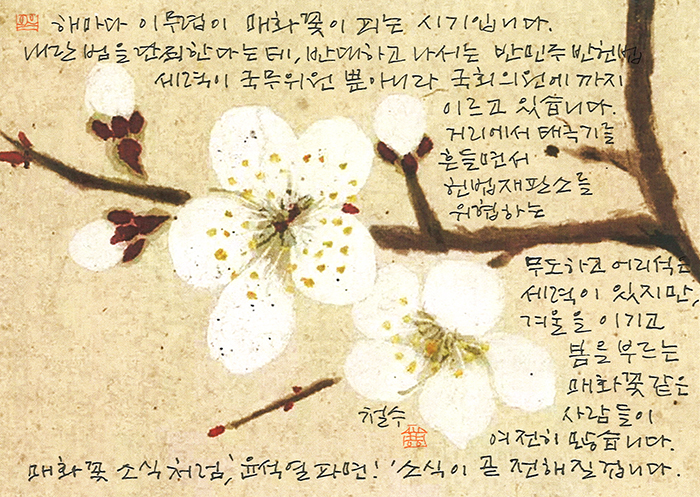 해마다 이무렵이 매화꽃이 피는 시기입니다.
내란범을 단죄한다는데, 반대하고 나서는 반민주 반헌법
세력이 국무위원 뿐아니라 국회의원에까지
이르고 있습니다.
거리에서 태극기를
흔들면서
헌법재판소를
위협하는
무도하고 어리석은
세력이 있지만,
겨울을 이기고
봄을 부르는
매화꽃 같은
사람들이
여전히 많습니다.
매화꽃 소식처럼, '윤석열 파면!' 소식이 곧 전해질 겁니다.
철수